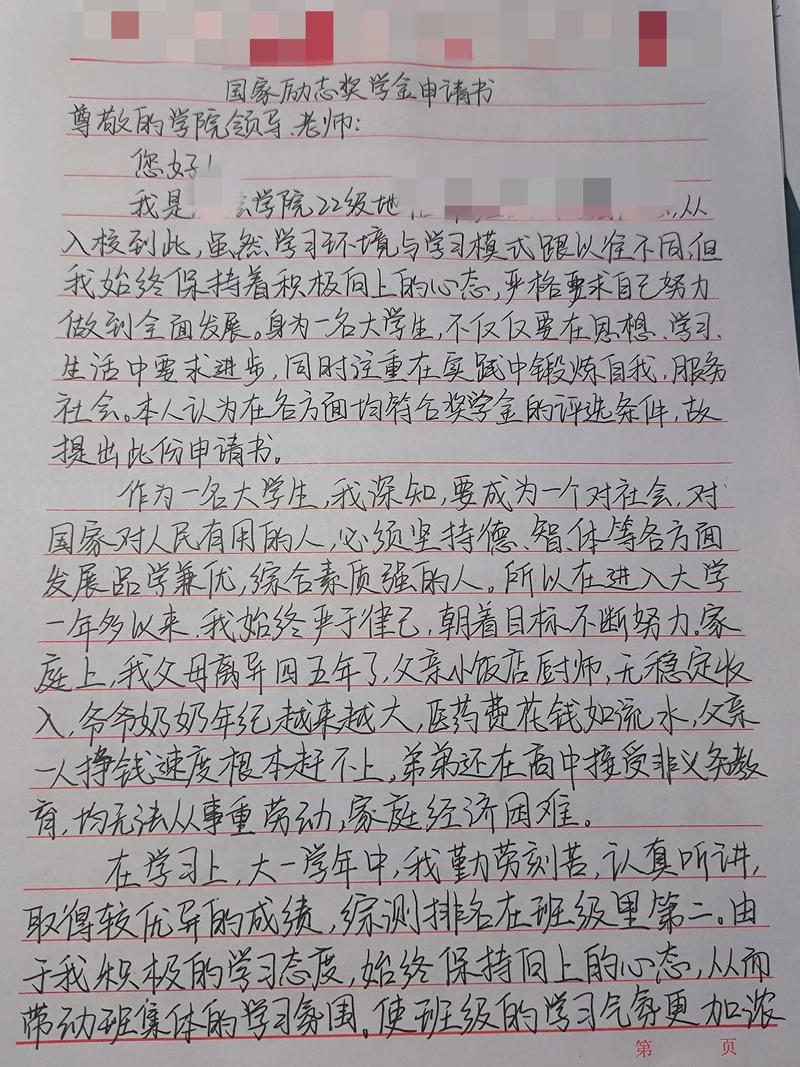 国家励志奖学金申请书
尊敬的学院领导、老师:
您好!
我是学院22级地从
入校到此,虽然学习环境与学习模式跟以往不同,但
我始终保持着积极向上的心态,严格要求自己努力
做到全面发展。身为一名大学生,不仅仅要在思想、学习、
生活中要求进步,同时注重在实践中锻炼自我,服务
社会。本人认为在各方面均符合奖学金的评选条件,故
提出此份申请书。
作为一名大学生,我深知,要成为一个对社会,对
国家对人民有用的人,必须坚持德、智、体等各方面
发展品学兼优,综合素质强的人。所以在进入大学
一年多以来,我始终严于律己,朝着目标不断努力。家
庭上,我父母离异四五年了,父亲小饭店厨师,无稳定收
入,爷爷奶奶年纪越来越大,医药费花钱如流水,父亲
一人挣钱速度根本赶不上,弟弟还在高中接受非义务教
育,均无法从事重劳动,家庭经济困难。
在学习上,大一学年中,我勤劳刻苦,认真听讲,
取得较优异的成绩,综测排名在班级里第二。由
于我积极的学习态度,始终保持向上的心态,从而
带动班集体的学习氛围。使班级的学习气氛更加浓
第 页